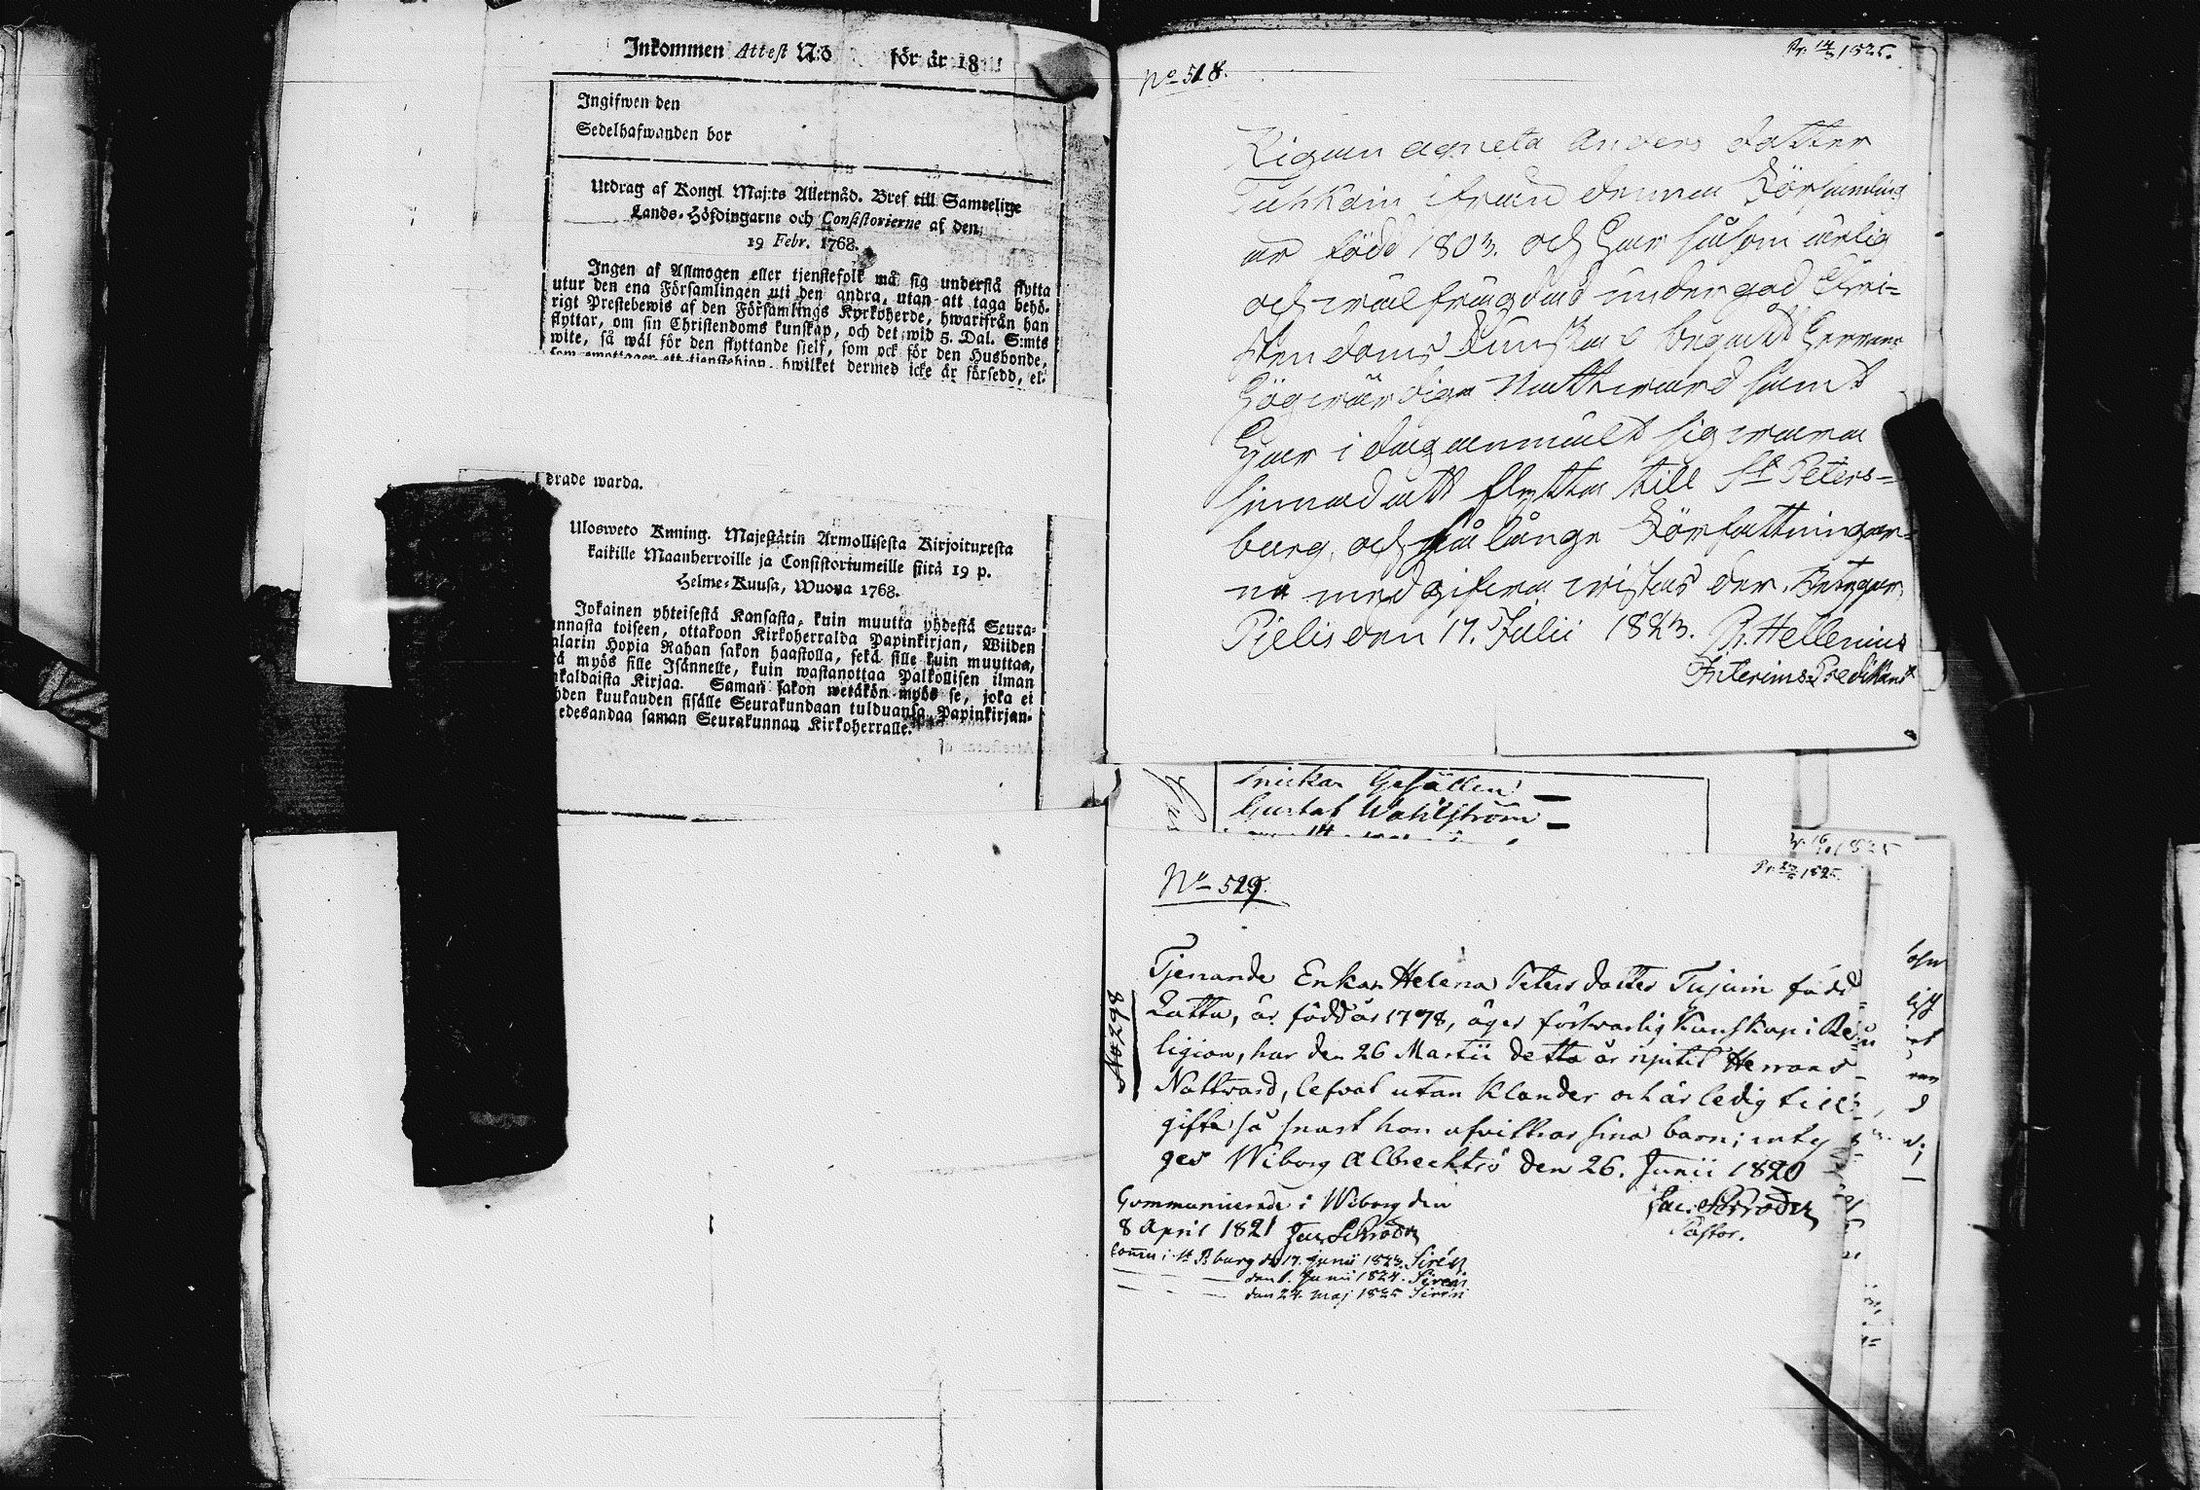 Inkommen Attest N:o för år 18
Ingifwen den
Sedelhafwanden bor
Utdrag af Kongl Maj:ts Allernåd. Bref till Samtelige
Lands-Höfdingarne och Consistorierne af den
19 Febr. 1768.
Ingen af Allmogen eller tjenstefolk må sig understå flytta
utur den ena Församlingen uti den andra, utan att taga behö-
rigt Prestebewis af den Församlings Kyrkoherde, hwarifrån han
flyttar, om sin Christendoms kunskap, och det wid 5. Dal. S:mts
wite, så wäl för den flyttande sielf, som ock för den Husbonde,
som emottager ett tjenstehion, hwilket dermed icke är försedd, el-
drade warda.
Ulosweto Kuning. Majestätin Armollisesta Kirjoituxesta
kaikille Maanherroille ja Consistoriumeille siitä 19 p.
Helme-Kuusa, Wuona 1768.
Jokainen yhteisestä Kansasta, kuin muutta yhdestä Seura-
nnasta toiseen, ottakoon Kirkoherralda Papinkirjan, Wiiden
alarin Hopia Rahan sakon haastolla, sekä sille kuin muuttaa,
ä myös sille Isännelle, kuin wastanottaa Palkollisen ilman
kaldaista Kirjaa. Saman sakon wetäkön myös se, joka ei
hden kuukauden sisälle Seurakundaan tulduansa Papinkirjan-
edesandaa saman Seurakunnan Kirkoherralle.
No 518.
Pr. 14/3 1825.
Pigan Agneta Anders dotter
Tuhkain ifrån denna Församling
är född 1803. och har såsom ärlig
och wälfrägdad under god Chri-
stendoms Kunskap begådt Herrans
Högwärdiga Nattward samt
har i dag anmält sig wara
sinnad att flytta till St Peters-
burg, och så långe Författningar-
na medgifwa wistas der. Betygar
Pielis den 17. Julii 1823. Hellenius
Interims Predikant
Snickar Gesällen
Gustaf Wahlström
No 519.
Pr. 1825.
No 298
Tjenande Enkan Helena Peters dotter Tujuin född
Latta, är född år 1778, äger försvarlig Kunskap i Re-
ligion, har den 26 Martii detta år njutit Herrans
Nattvard, lefvat utan Klander och är ledig till
gifte så snart hon afvittrar sina barn; inty
ges Wiborg Albrechtsö den 26. Junii 1820
Jac. Schröder
Pastor.
Communicerade i Wiborg den
8 April 1821 Jac. Schröder
Comm. i St. P.burg d. 17. Junii 1823. Sirén
den 1. Junii 1824. Sirén
den 24. Maj 1825 Sirén